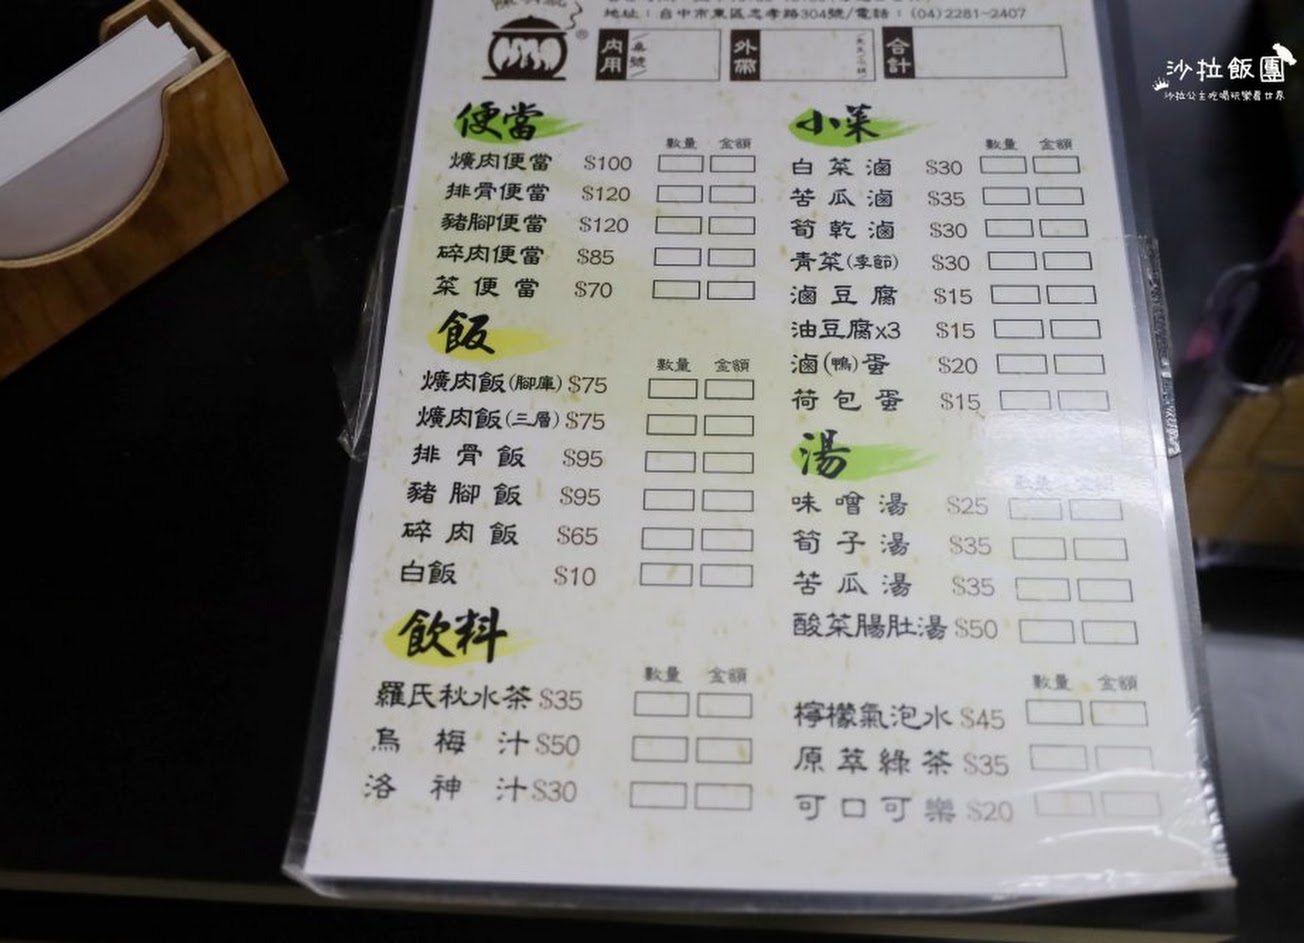 地址：台中市東區忠孝路304號/電話：(04)2281-2407
內用 桌號 外帶 合計
沙拉飯團
沙拉公主吃喝玩樂看世界
便當
數量 金額
爌肉便當 $100
排骨便當 $120
豬腳便當 $120
碎肉便當 $85
菜便當 $70
飯
數量 金額
爌肉飯(腳庫) $75
爌肉飯(三層) $75
排骨飯 $95
豬腳飯 $95
碎肉飯 $65
白飯 $10
飲料
數量 金額
羅氏秋水茶 $35
烏梅汁 $50
洛神汁 $30
小菜
數量 金額
白菜滷 $30
苦瓜滷 $35
筍乾滷 $30
青菜(季節) $30
滷豆腐 $15
油豆腐x3 $15
滷(鴨)蛋 $20
荷包蛋 $15
湯
數量 金額
味噌湯 $25
筍子湯 $35
苦瓜湯 $35
酸菜腸肚湯 $50
數量 金額
檸檬氣泡水 $45
原萃綠茶 $35
可口可樂 $20